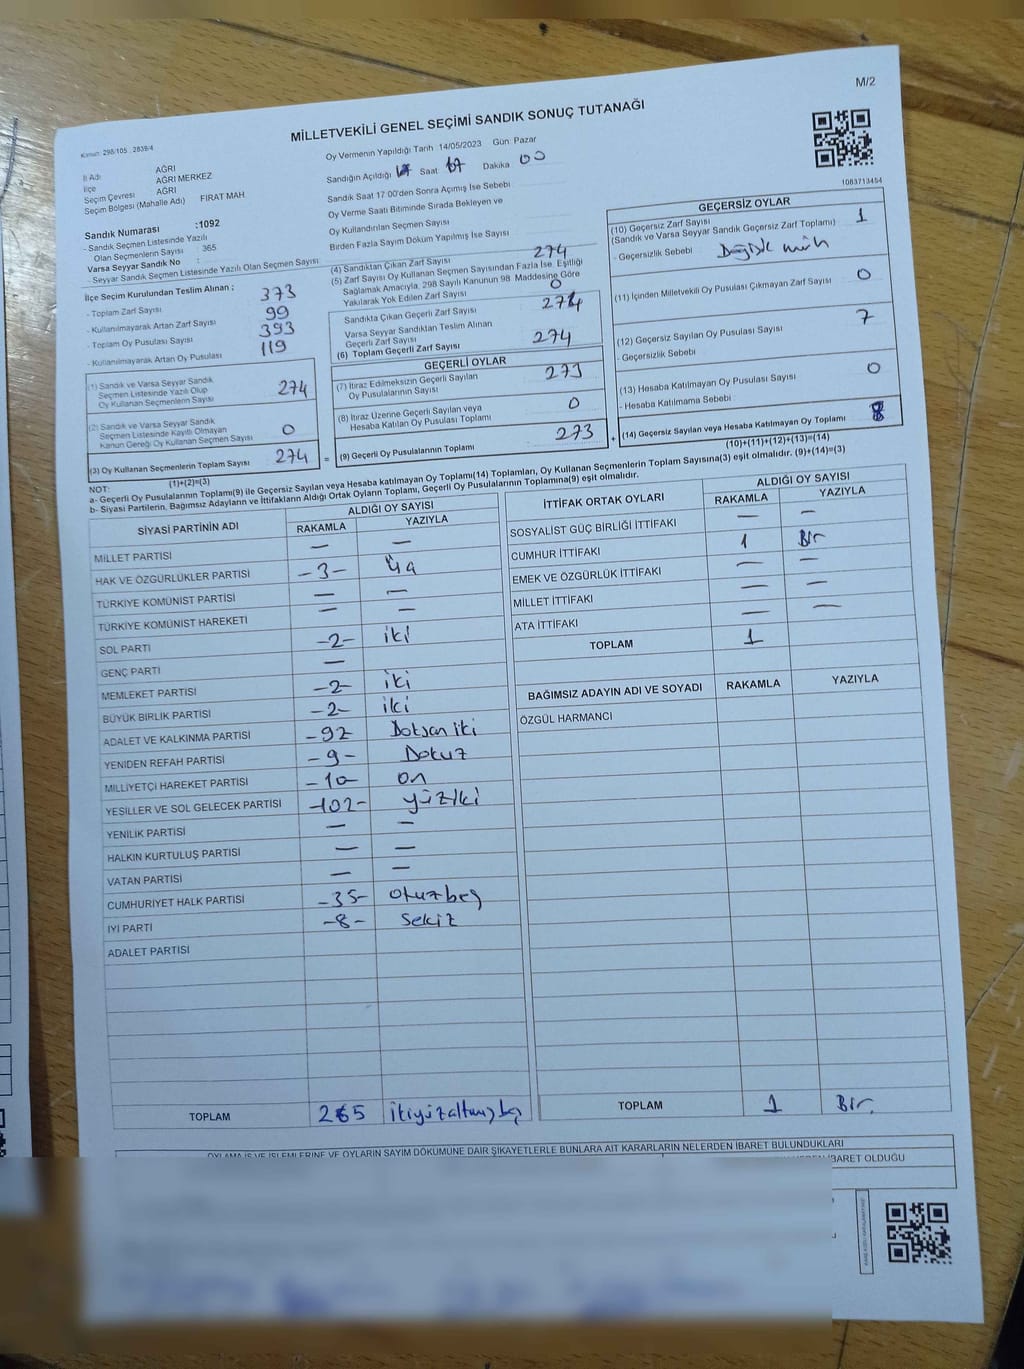 M/2
MİLLETVEKİLİ GENEL SEÇİMİ SANDIK SONUÇ TUTANAĞI
Kanun: 298/105 , 2839/4
Oy Vermenin Yapıldığı Tarih 14/05/2023 Gün: Pazar
Sandığın Açıldığı 17 Saat 17 Dakika 00
Sandık Saat 17:00'den Sonra Açımış İse Sebebi
Oy Verme Saati Bitiminde Sırada Bekleyen ve
Oy Kullandırılan Seçmen Sayısı
Birden Fazla Sayım Döküm Yapılmış İse Sayısı
İl Adı AĞRI
İlçe AĞRI MERKEZ
Seçim Çevresi AĞRI
Seçim Bölgesi (Mahalle Adı) FIRAT MAH
Sandık Numarası :1092
- Sandık Seçmen Listesinde Yazılı
Olan Seçmenlerin Sayısı : 365
Varsa Seyyar Sandık No :
- Seyyar Sandık Seçmen Listesinde Yazılı Olan Seçmen Sayısı
İlçe Seçim Kurulundan Teslim Alınan ;
- Toplam Zarf Sayısı 373
- Kullanılmayarak Artan Zarf Sayısı 99
- Toplam Oy Pusulası Sayısı 393
- Kullanılmayarak Artan Oy Pusulası 119
(1) Sandık ve Varsa Seyyar Sandık
Seçmen Listesinde Yazılı Olup
Oy Kullanan Seçmenlerin Sayısı 274
(2) Sandık ve Varsa Seyyar Sandık
Seçmen Listesinde Kayıtlı Olmayan
Kanun Gereği Oy Kullanan Seçmen Sayısı 0
(3) Oy Kullanan Seçmenlerin Toplam Sayısı 274 =
(1)+(2)=(3)
(4) Sandıktan Çıkan Zarf Sayısı 274
(5) Zarf Sayısı Oy Kullanan Seçmen Sayısından Fazla İse, Eşitliği
Sağlamak Amacıyla, 298 Sayılı Kanunun 98. Maddesine Göre
Yakılarak Yok Edilen Zarf Sayısı 0
Sandıkta Çıkan Geçerli Zarf Sayısı 274
Varsa Seyyar Sandıktan Teslim Alınan
Geçerli Zarf Sayısı
(6) Toplam Geçerli Zarf Sayısı 274
GEÇERLİ OYLAR
(7) İtiraz Edilmeksizin Geçerli Sayılan
Oy Pusulalarının Sayısı 273
(8) İtiraz Üzerine Geçerli Sayılan veya
Hesaba Katılan Oy Pusulası Toplamı 0
(9) Geçerli Oy Pusulalarının Toplamı 273 +
1083713454
GEÇERSİZ OYLAR
(10) Geçersiz Zarf Sayısı
(Sandık ve Varsa Seyyar Sandık Geçersiz Zarf Toplamı) 1
- Geçersizlik Sebebi
(11) İçinden Milletvekili Oy Pusulası Çıkmayan Zarf Sayısı 0
(12) Geçersiz Sayılan Oy Pusulası Sayısı 7
- Geçersizlik Sebebi
(13) Hesaba Katılmayan Oy Pusulası Sayısı 0
- Hesaba Katılmama Sebebi
(14) Geçersiz Sayılan veya Hesaba Katılmayan Oy Toplamı 8
(10)+(11)+(12)+(13)=(14)
NOT:
a- Geçerli Oy Pusulalarının Toplamı(9) ile Geçersiz Sayılan veya Hesaba katılmayan Oy Toplamı(14) Toplamları, Oy Kullanan Seçmenlerin Toplam Sayısına(3) eşit olmalıdır. (9)+(14)=(3)
b- Siyasi Partilerin, Bağımsız Adayların ve İttifakların Aldığı Ortak Oyların Toplamı, Geçerli Oy Pusulalarının Toplamına(9) eşit olmalıdır.
SİYASİ PARTİNİN ADI ALDIĞI OY SAYISI
RAKAMLA YAZIYLA
MİLLET PARTİSI — —
HAK VE ÖZGÜRLÜKLER PARTİSİ -3-
TÜRKİYE KOMÜNİST PARTİSİ — —
TÜRKİYE KOMÜNİST HAREKETİ — —
SOL PARTİ -2- iki
GENÇ PARTİ —
MEMLEKET PARTİSİ -2- iki
BÜYÜK BİRLİK PARTİSİ -2- iki
ADALET VE KALKINMA PARTİSİ -92 Doksan iki
YENİDEN REFAH PARTİSİ -9- Dokuz
MİLLİYETÇİ HAREKET PARTİSİ -10- on
YEŞİLLER VE SOL GELECEK PARTİSİ -102- yüziki
YENİLİK PARTİSİ — —
HALKIN KURTULUŞ PARTİSİ — —
VATAN PARTİSİ — —
CUMHURİYET HALK PARTİSİ -35- otuzbeş
İYİ PARTİ -8- Sekiz
ADALET PARTİSİ
TOPLAM 265 ikiyüzaltmışbeş
İTTİFAK ORTAK OYLARI ALDIĞI OY SAYISI
RAKAMLA YAZIYLA
SOSYALİST GÜÇ BİRLİĞİ İTTİFAKI — —
CUMHUR İTTİFAKI 1 Bir
EMEK VE ÖZGÜRLÜK İTTİFAKI — —
MİLLET İTTİFAKI — —
ATA İTTİFAKI — —
TOPLAM 1
BAĞIMSIZ ADAYIN ADI VE SOYADI RAKAMLA YAZIYLA
ÖZGÜL HARMANCI
TOPLAM 1 Bir.
OYLAMA İŞ VE İŞLEMLERİNE VE OYLARIN SAYIM DÖKÜMÜNE DAİR ŞİKAYETLERLE BUNLARA AİT KARARLARIN NELERDEN İBARET BULUNDUKLARI
İBARET OLDUĞU